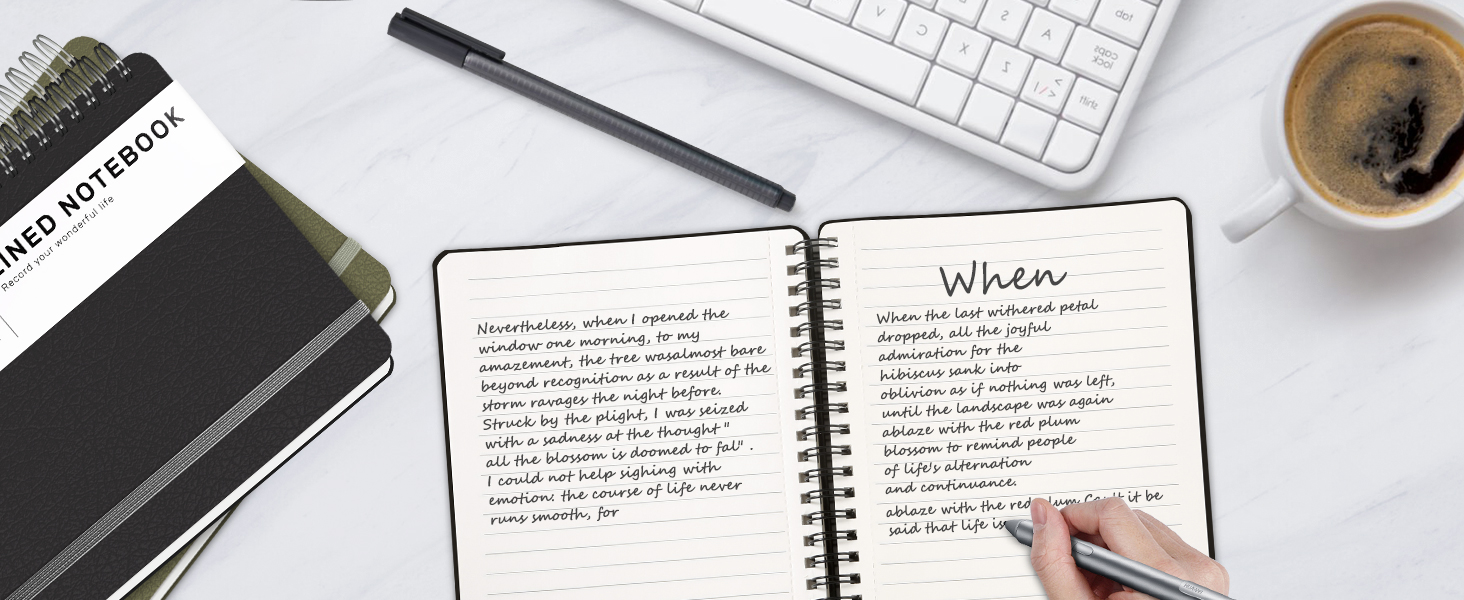 LINED NOTEBOOK
Record your wonderful life
Nevertheless, when I opened the
window one morning, to my
amazement, the tree wasalmost bare
beyond recognition as a result of the
storm ravages the night before.
Struck by the plight, I was seized
with a sadness at the thought "
all the blossom is doomed to fal" .
I could not help sighing with
emotion: the course of life never
runs smooth, for
When
When the last withered petal
dropped, all the joyful
admiration for the
hibiscus sank into
oblivion as if nothing was left,
until the landscape was again
ablaze with the red plum
blossom to remind people
of life's alternation
and continuance.
ablaze with the red plum Can't it be
said that life is
V
C
X
Z
S
A
tab
caps
lock
shift